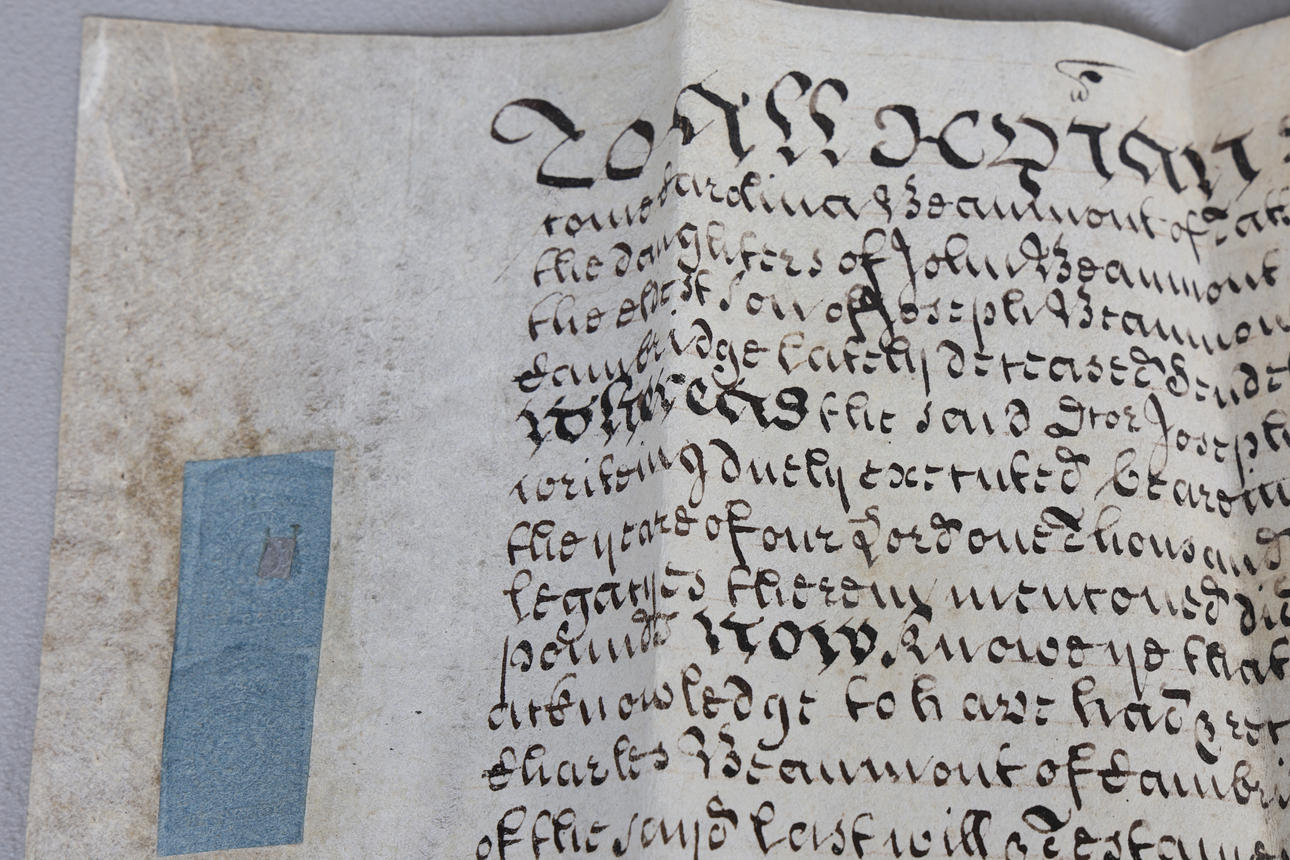 To All Xpian
come Carolina Beaumont of Tatt
the daughters of John Beaumont
the eldest son of Joseph Beaumon
Cambridge lately deceased Sende
Whereas the said Dtor Joseph
writeing duely executed beareing
the yeare of our Lord one Thousand
legacyes therein mentoned did
pounds Now Knowe ye that
acknowledge to have had & rec
Charles Beaumont of Cambri
of the sayd last will & Testam